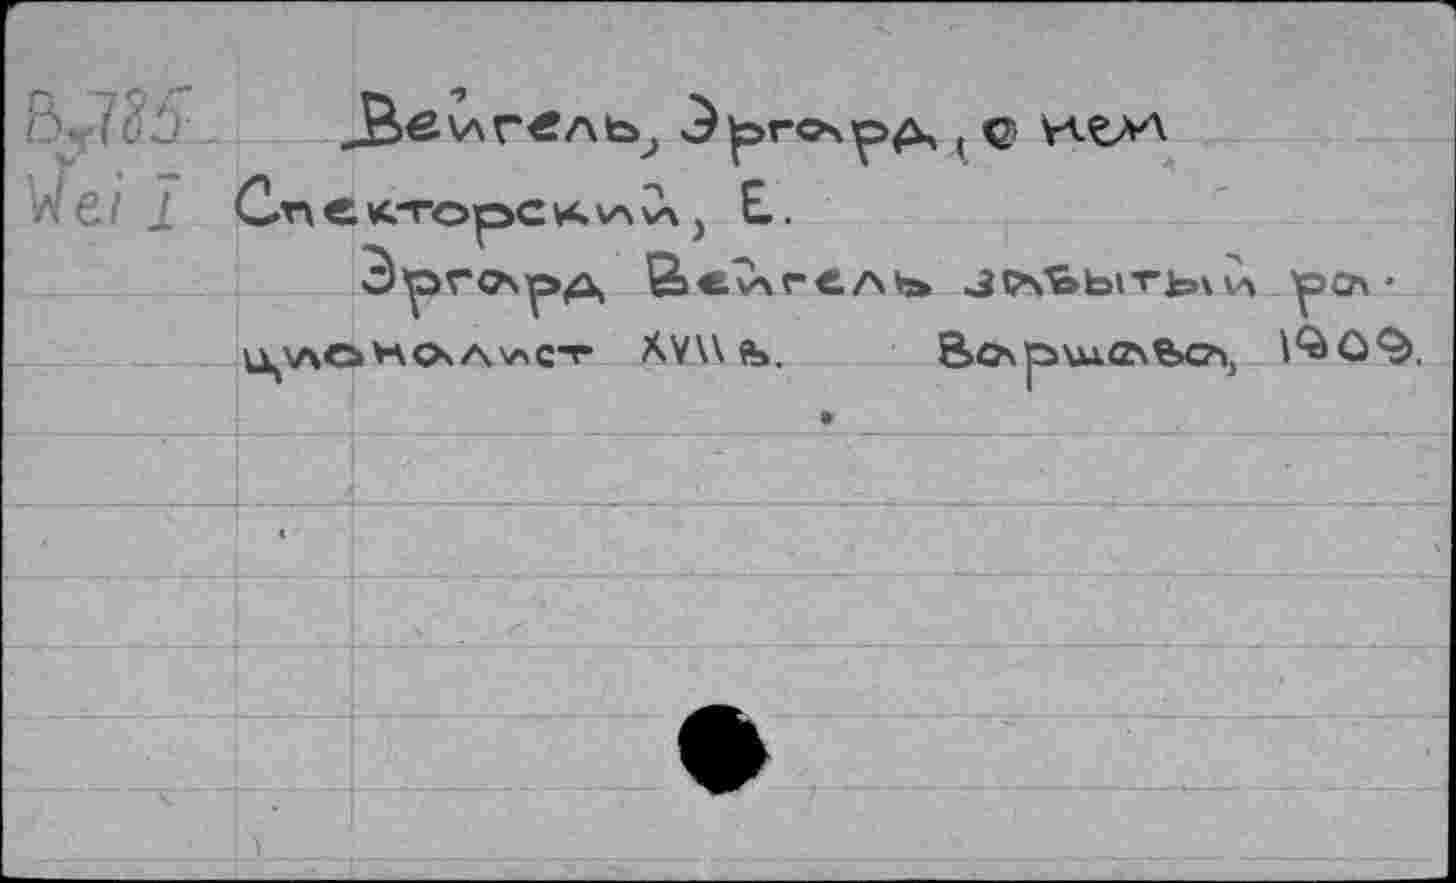 B.785
Wei I
Вейгель, Эргард, о нем
Спекторский, Е.
Эргард Вейгель забытый ра-
ционалист XVII в. Варшава, 1909.